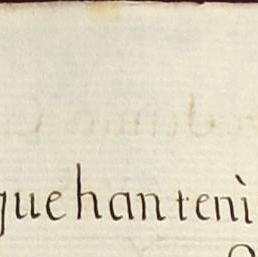 que han teni